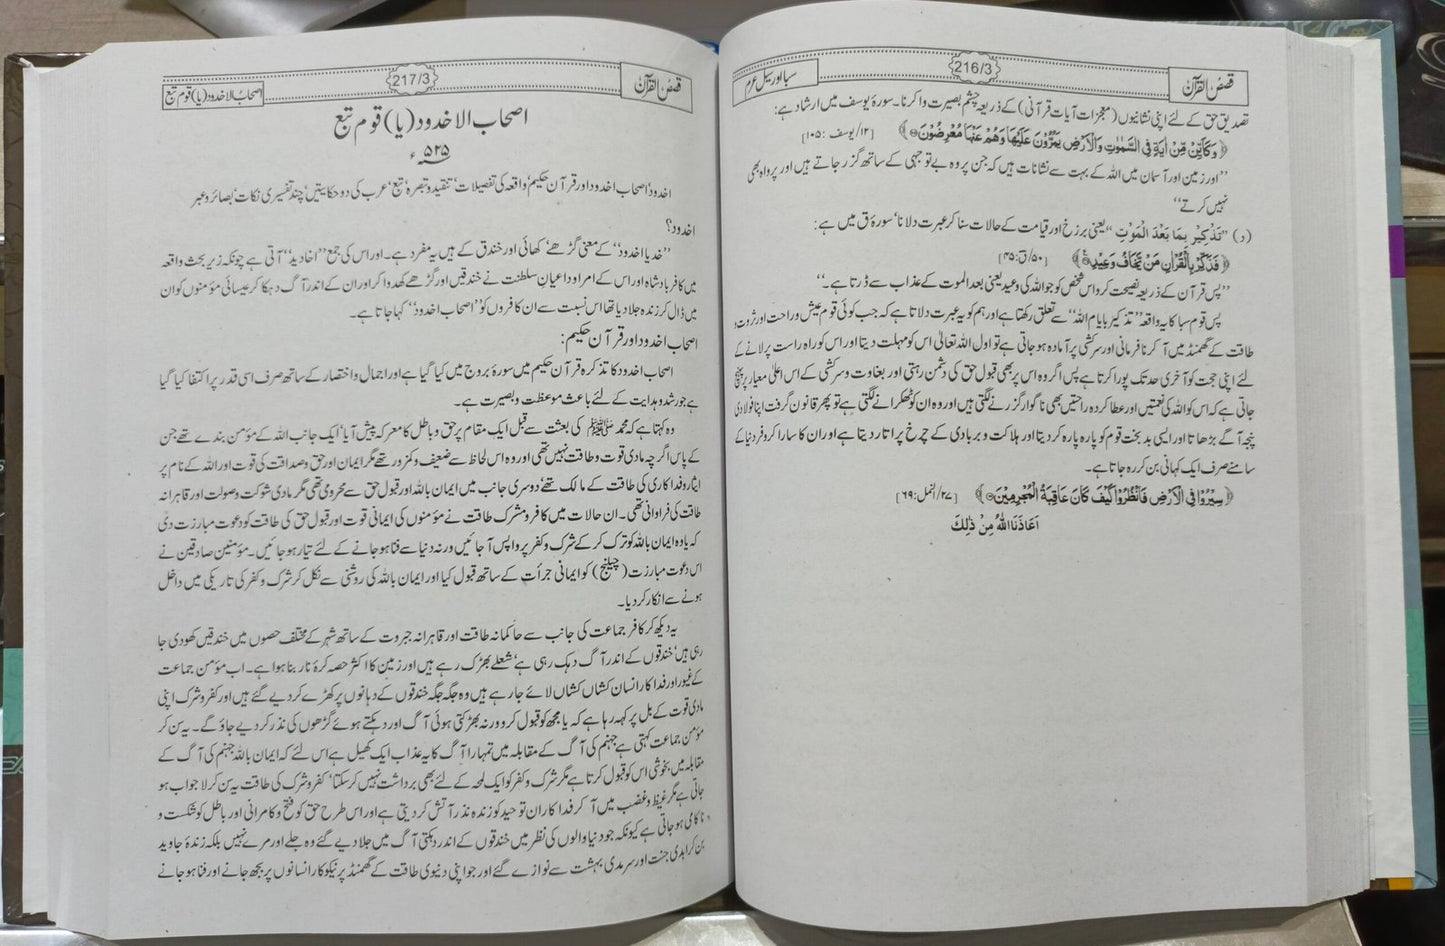 قصص القرآن
216/3
سبا اور سیل عرم
تصدیق حق کے لئے اپنی نشانیوں (معجزات آیات قرآنی) کے ذریعہ چشم بصیرت وا کرنا۔ سورۂ یوسف میں ارشاد ہے:
﴿وَكَاَيِّنْ مِّنْ اٰيَةٍ فِي السَّمٰوٰتِ وَالْاَرْضِ يَمُرُّوْنَ عَلَيْهَا وَهُمْ عَنْهَا مُعْرِضُوْنَ﴾ [۱۲/یوسف :۱۰۵]
’’اور زمین اور آسمان میں اللہ کے بہت سے نشانات ہیں کہ جن پر وہ بے توجہی کے ساتھ گزر جاتے ہیں اور پرواہ بھی
نہیں کرتے‘‘
(د) ’’تَذْكِيْر بِمَا بَعْدَ الْمَوْتِ‘‘ یعنی برزخ اور قیامت کے حالات سنا کر عبرت دلانا‘ سورۂ ق میں ہے:
﴿فَذَكِّرْ بِالْقُرْاٰنِ مَنْ يَّخَافُ وَعِيْدِ﴾ [۵۰/ق:۴۵]
’’پس قرآن کے ذریعہ نصیحت کر دو اس شخص کو جو اللہ کی وعید یعنی بعد الموت کے عذاب سے ڈرتا ہے۔‘‘
پس قوم سبا کا یہ واقعہ ’’تذکیر بایام اللہ‘‘ سے تعلق رکھتا ہے اور ہم کو یہ عبرت دلاتا ہے کہ جب کوئی قوم عیش و راحت اور ثروت و
طاقت کے گھمنڈ میں آ کر نافرمانی اور سرکشی پر آمادہ ہو جاتی ہے تو اول اللہ تعالیٰ اس کو مہلت دیتا اور اس کو راہ راست پر لانے کے
لئے اپنی حجت کو آخری حد تک پورا کرتا ہے پس اگر وہ اس پر بھی قبول حق کی دشمن رہتی اور بغاوت و سرکشی کے اس اعلیٰ معیار پر پہنچ
جاتی ہے کہ اس کو اللہ کی نعمتیں اور عطا کردہ راحتیں بھی ناگوار گزرنے لگتی ہیں اور وہ ان کو ٹھکرانے لگتی ہے تو پھر قانون گرفت اپنا فولادی
پنجہ آگے بڑھاتا اور ایسی بدبخت قوم کو پارہ پارہ کر دیتا اور ہلاکت و بربادی کے چرخ پر اتار دیتا ہے اور ان کا سارا کروفر دنیا کے
سامنے صرف ایک کہانی بن کر رہ جاتا ہے۔
﴿سِيْرُوْا فِي الْاَرْضِ فَانْظُرُوْا كَيْفَ كَانَ عَاقِبَةُ الْمُجْرِمِيْنَ﴾ [۲۷/النمل:۶۹]
اَعَاذَنَا اللّٰهُ مِنْ ذٰلِكَ
قصص القرآن
217/3
اصحاب الاخدود (یا) قوم تبع
اصحاب الاخدود (یا) قوم تبع
۵۲۵ء
اخدود‘ اصحاب اخدود اور قرآن حکیم‘ واقعہ کی تفصیلات‘ تنقید و تبصرہ‘ تبع‘ عرب کی دو حکایتیں‘ چند تفسیری نکات‘ بصائر و عبر
اخدود؟
’’خد یا اخدود‘‘ کے معنی گڑھے‘ کھائی اور خندق کے ہیں یہ مفرد ہے۔ اور اس کی جمع ’’اخادید‘‘ آتی ہے چونکہ زیر بحث واقعہ
میں کافر بادشاہ اور اس کے امرا و اعیان سلطنت نے خندقیں اور گڑھے کھدوا کر اور ان کے اندر آگ دہکا کر عیسائی مؤمنوں کو ان
میں ڈال کر زندہ جلا دیا تھا اس نسبت سے ان کافروں کو ’’اصحاب اخدود‘‘ کہا جاتا ہے۔
اصحاب اخدود اور قرآن حکیم:
اصحاب اخدود کا تذکرہ قرآن حکیم میں سورۂ بروج میں کیا گیا ہے اور اجمال و اختصار کے ساتھ صرف اسی قدر پر اکتفا کیا گیا
ہے جو رشد و ہدایت کے لئے باعث موعظت و بصیرت ہے۔
وہ کہتا ہے کہ محمد ﷺ کی بعثت سے قبل ایک مقام پر حق و باطل کا معرکہ پیش آیا‘ ایک جانب اللہ کے مؤمن بندے تھے جن
کے پاس اگرچہ مادی قوت و طاقت نہیں تھی اور وہ اس لحاظ سے ضعیف و کمزور تھے مگر ایمان اور حق و صداقت کی قوت اور اللہ کے نام پر
ایثار و فدا کاری کی طاقت کے مالک تھے‘ دوسری جانب میں ایمان باللہ اور قبول حق سے محرومی تھی مگر مادی شوکت و صولت اور قاہرانہ
طاقت کی فراوانی تھی۔ ان حالات میں کافر و مشرک طاقت نے مؤمنوں کی ایمانی قوت اور قبول حق کی طاقت کو دعوت مبارزت دی
کہ یا وہ ایمان باللہ کو ترک کر کے شرک و کفر پر واپس آ جائیں ورنہ دنیا سے فنا ہو جانے کے لئے تیار ہو جائیں۔ مؤمنین صادقین نے
اس دعوت مبارزت (چیلنج) کو ایمانی جرأت کے ساتھ قبول کیا اور ایمان باللہ کی روشنی سے نکل کر شرک و کفر کی تاریکی میں داخل
ہونے سے انکار کر دیا۔
یہ دیکھ کر کافر جماعت کی جانب سے حاکمانہ طاقت اور قاہرانہ جبروت کے ساتھ شہر کے مختلف حصوں میں خندقیں کھودی جا
رہی ہیں‘ خندقوں کے اندر آگ دہک رہی ہے‘ شعلے بھڑک رہے ہیں اور زمین کا اکثر حصہ کرۂ نار بنا ہوا ہے۔ اب مؤمن جماعت
کے غیور اور فدا کار انسان کشاں کشاں لائے جا رہے ہیں وہ جگہ جگہ خندقوں کے دہانوں پر کھڑے کر دیے گئے ہیں اور کفر و شرک اپنی
مادی قوت کے بل پر کہہ رہا ہے کہ یا مجھ کو قبول کرو ورنہ بھڑکتی ہوئی آگ اور دہکتے ہوئے گڑھوں کی نذر کر دیے جاؤ گے۔ یہ سن کر
مؤمن جماعت کہتی ہے جہنم کی آگ کے مقابلہ میں تمہارا آگ کا یہ عذاب ایک کھیل ہے اس لئے کہ ایمان باللہ جہنم کی آگ کے
مقابلہ میں بخوشی اس کو قبول کرتا ہے مگر شرک و کفر کو ایک لمحہ کے لئے بھی برداشت نہیں کر سکتا‘ کفر و شرک کی طاقت یہ سن کر لا جواب ہو
جاتی ہے مگر غیظ و غضب میں آ کر فدا کاران توحید کو زندہ نذر آتش کر دیتی ہے اور اس طرح حق کو فتح و کامرانی اور باطل کو شکست و
ناکامی ہو جاتی ہے کیونکہ جو دنیا والوں کی نظر میں خندقوں کے اندر دہکتی آگ میں جلا دیے گئے وہ جلے اور مرے نہیں بلکہ زندۂ جاوید
بن کر ابدی جنت اور سرمدی بہشت سے نوازے گئے اور جو اپنی دنیوی طاقت کے گھمنڈ پر نیکوکار انسانوں پر بجھ جانے اور فنا ہو جانے